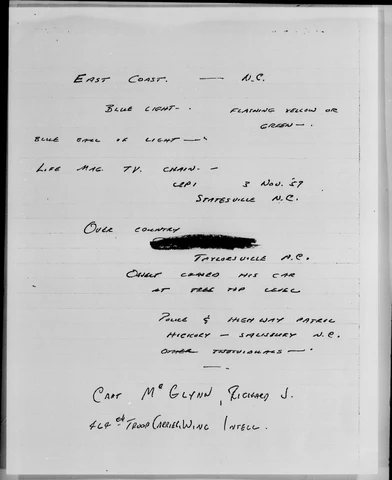 EAST COAST. — N.C.
BLUE LIGHT-. FLASHING YELLOW OR
GREEN—.
BLUE BALL OF LIGHT—.
LIFE MAG TV. CHAIN.-
3 NOV. '57
STATESVILLE N.C.
OVER COUNTRY
TAYLORSVILLE N.C.
OBJECT CHASED HIS CAR
AT TREE TOP LEVEL
POLICE & HIGHWAY PATROL
HICKORY - SALISBURY N.C.
OTHER INDIVIDUALS—.
—.
CAPT McGLYNN, RICHARD J.
464th TROOP CARRIER WING INTELL.